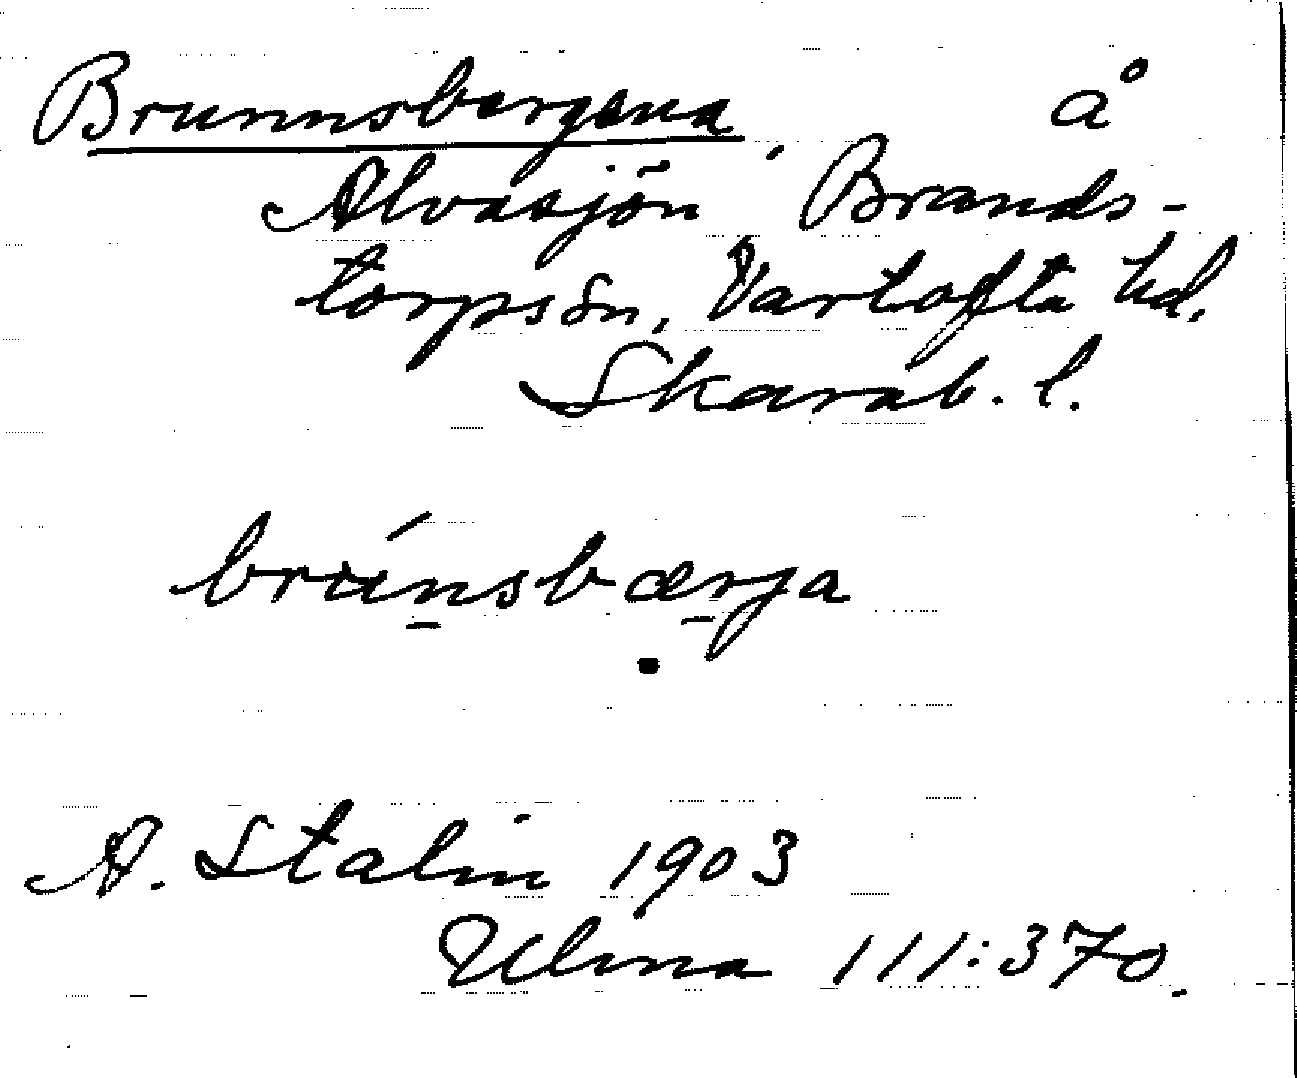 Brunnsbergena, å
Alvasjön Brands-
torps sn, Vartofta hd.
Skarab. l.
brúnsbærja
A. Stalin 1903
Ulma 111:370.